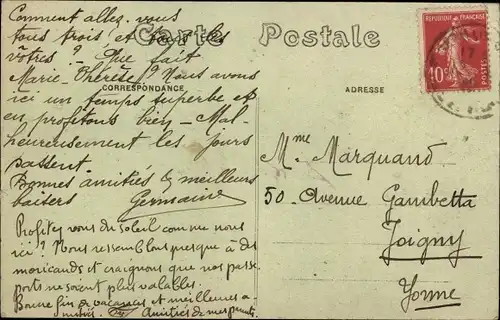 Comment allez-vous
tous trois et tous les
vôtres ? Que fait
Marie-Thérèse ? Nous avons
ici un temps superbe et
en profitons bien - Mal-
heureusement les jours
passent.
Bonnes amitiés & meilleurs
baisers Germaine
Profitez vous du soleil comme nous
ici ? Nous ressemblons presque à des
moricauds et craignons que nos passe-
ports ne soient plus valables.
Bonne fin de vacances et meilleures a-
mitiés. Amitiés de mes parents.
Carte Postale
CORRESPONDANCE
ADRESSE
REPUBLIQUE FRANÇAISE
10c
POSTES
17
Mme Marquand
50 - Avenue Gambetta
Joigny
Yonne